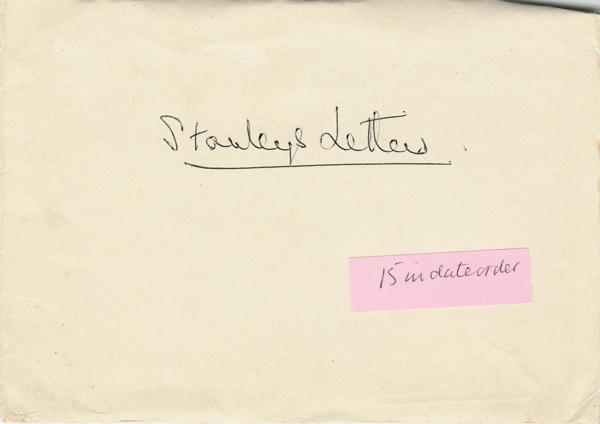 Stanleys Letters.
15 in date order